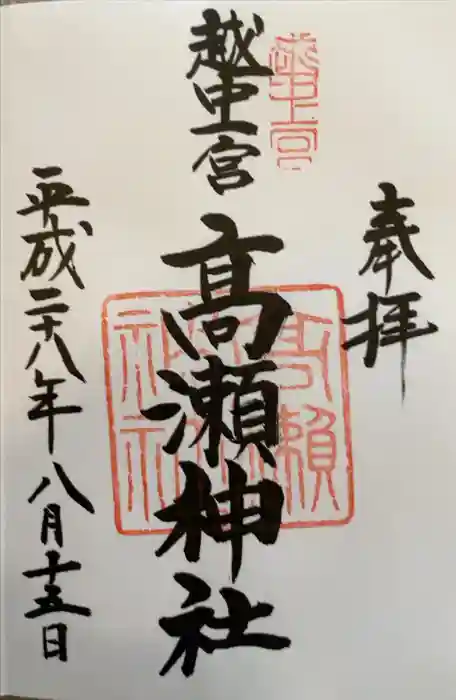 奉拝
越中一宮
髙瀬神社
平成二十八年八月十五日
越中一宮
高瀬神社